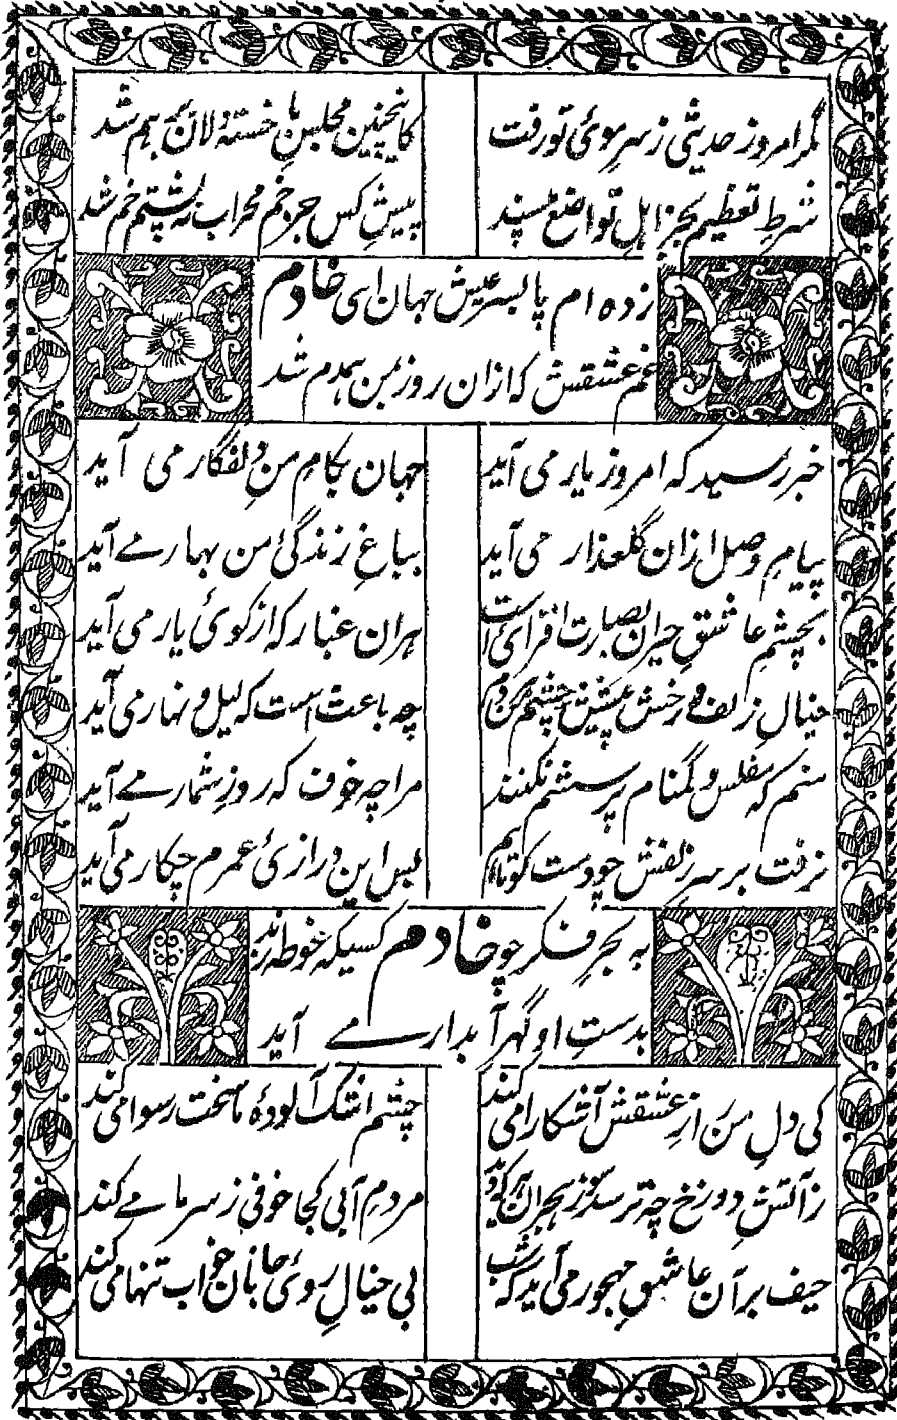 مگر امروز حدیثی ز سرِ موئ تو رفت کاینچنین مجلسِ ما خستہ دلان برہم شد
شرطِ تعظیم بجز اہلِ تواضع مپسند پیشِ کس جز خمِ محراب نہ پشتم خم شد
زدہ ام پا بسرِ عیشِ جہان ای خادم
غمِ عشقش کہ ازان روز بمن ہمدم شد
خبر رسید کہ امروز یار می آید جہان بکامِ منِ دلفگار می آید
پیامِ وصل ازان گلعذار می آید بباغِ زندگیٔ من بہار مے آید
بچشمِ عاشقِ حیران بصارت افزائ است ہران غبار کہ از کوئ یار می آید
خیالِ زلف و رخش پیشِ چشمِ من ہر دم چہ باعث است کہ لیل و نہار می آید
منم کہ مفلس و گمنام پرسشم نکنند مرا چہ خوف کہ روزِ شمار مے آید
نرفت بر سرِ زلفش چو دست کوتاہم بس این درازیٔ عمرم چکار می آید
بہ بحرِ فکر چو خادم کسیکہ غوطہ زند
بدستِ او گہر آبدار مے آید
کی دلِ من رازِ عشقش آشکارا می کند چشمِ اشک آلودہ ما سخت رسوا می کند
ز آتشِ دوزخ چہ ترسد سوزِ ہجران ہر کہ دید مردمِ آبی کجا خوفی ز سرما مے کند
حیف بر آن عاشقِ مہجور می آید کہ شب بی خیالِ روئ جانان خواب تنہا می کند